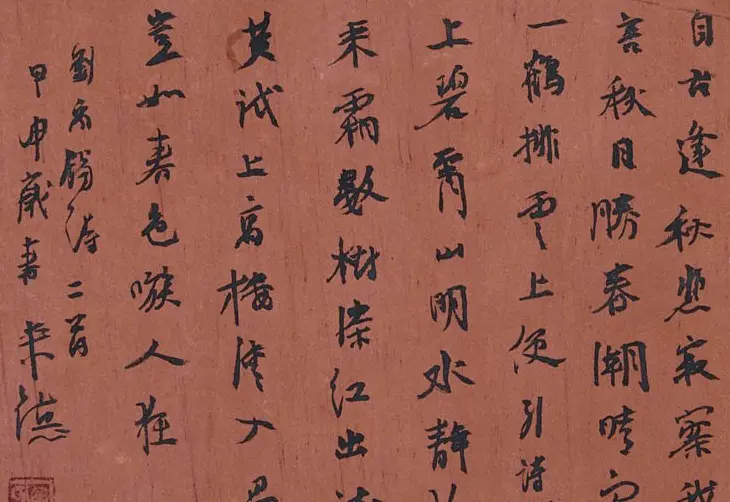 自古逢秋悲寂寥
言秋日勝春潮晴空
一鶴排雲上便引詩
上碧霄山明水靜
来霜數樹深红出
黄試上高樓清入
豈如春色嗾人狂
劉禹錫詩二首
甲申歲書